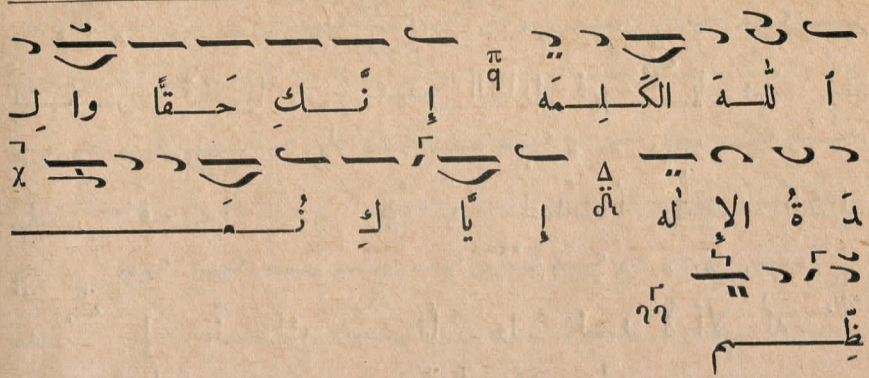 ٱ للّٰـهَ الكَـلِـمَه إِ نَّـكِ حَـقًّا وا لِـ
دَ ةُ الإِ لٰه إِ يَّا كِ نُـعَـ
ظِّـم